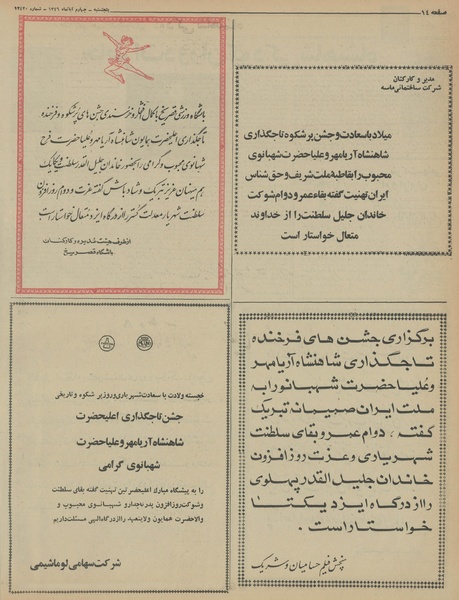 صفحه ۱۴
پنجشنبه - چهارم آبانماه ۱۳۴۶ - شماره
مدیر و کارکنان
شرکت ساختمانی ماسه
میلاد باسعادت و جشن پرشکوه تاجگذاری
شاهنشاه آریامهر و علیاحضرت شهبانوی
محبوب را بقاطبه ملت شریف و حق شناس
ایران تهنیت گفته بقاء عمر و دوام شوکت
خاندان جلیل سلطنت را از خداوند
متعال خواستار است
باشگاه ورزشی قصر یخ با کمال افتخار و خرسندی جشن های پرشکوه و فرخنده
تاجگذاری اعلیحضرت همایون شاهنشاه آریامهر و علیاحضرت فرح
شهبانوی محبوب و گرامی را بحضور خاندان جلیل القدر سلطنت و فرد فرد
هم میهنان عزیز تبریک و شادباش گفته عزت و دوام روزافزون
سلطنت شهریار معدلت گستر را از درگاه ایزد متعال خواستار است
از طرف هیئت مدیره و کارکنان
باشگاه قصر یخ
برگزاری جشن های فرخنده
تاجگذاری شاهنشاه آریامهر
و علیاحضرت شهبانو را به
ملت ایران صمیمانه تبریک
گفته ، دوام عمر و بقای سلطنت
شهریاری و عزت روزافزون
خاندان جلیل القدر پهلوی
را از درگاه ایزد یکتا
خواستار است .
پخش فیلم حسامیان و شریک
خجسته ولادت با سعادت شهریاری و روز پر شکوه و تاریخی
جشن تاجگذاری اعلیحضرت
شاهنشاه آریامهر و علیاحضرت
شهبانوی گرامی
را به پیشگاه مبارک اعلیحضرتین تهنیت گفته بقای سلطنت
و شوکت روزافزون پدر تاجدار و شهبانوی محبوب و
والاحضرت همایون ولایتعهد را از درگاه الهی مسئلت داریم
شرکت سهامی لوماشیمی